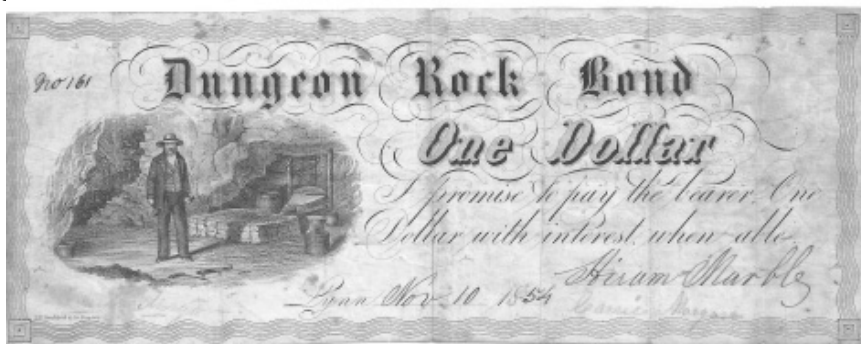 No 161
Dungeon Rock Bond
One Dollar
I promise to pay the bearer One
Dollar with interest when able
Hiram Marble
Lynn Nov 10 1854